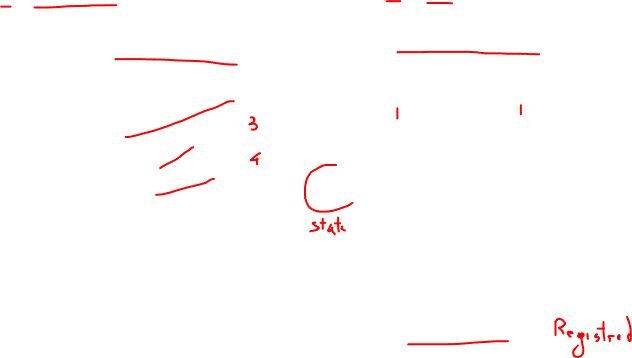 3
4
state
Registred